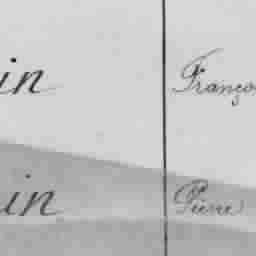 in Franço
in Pierre